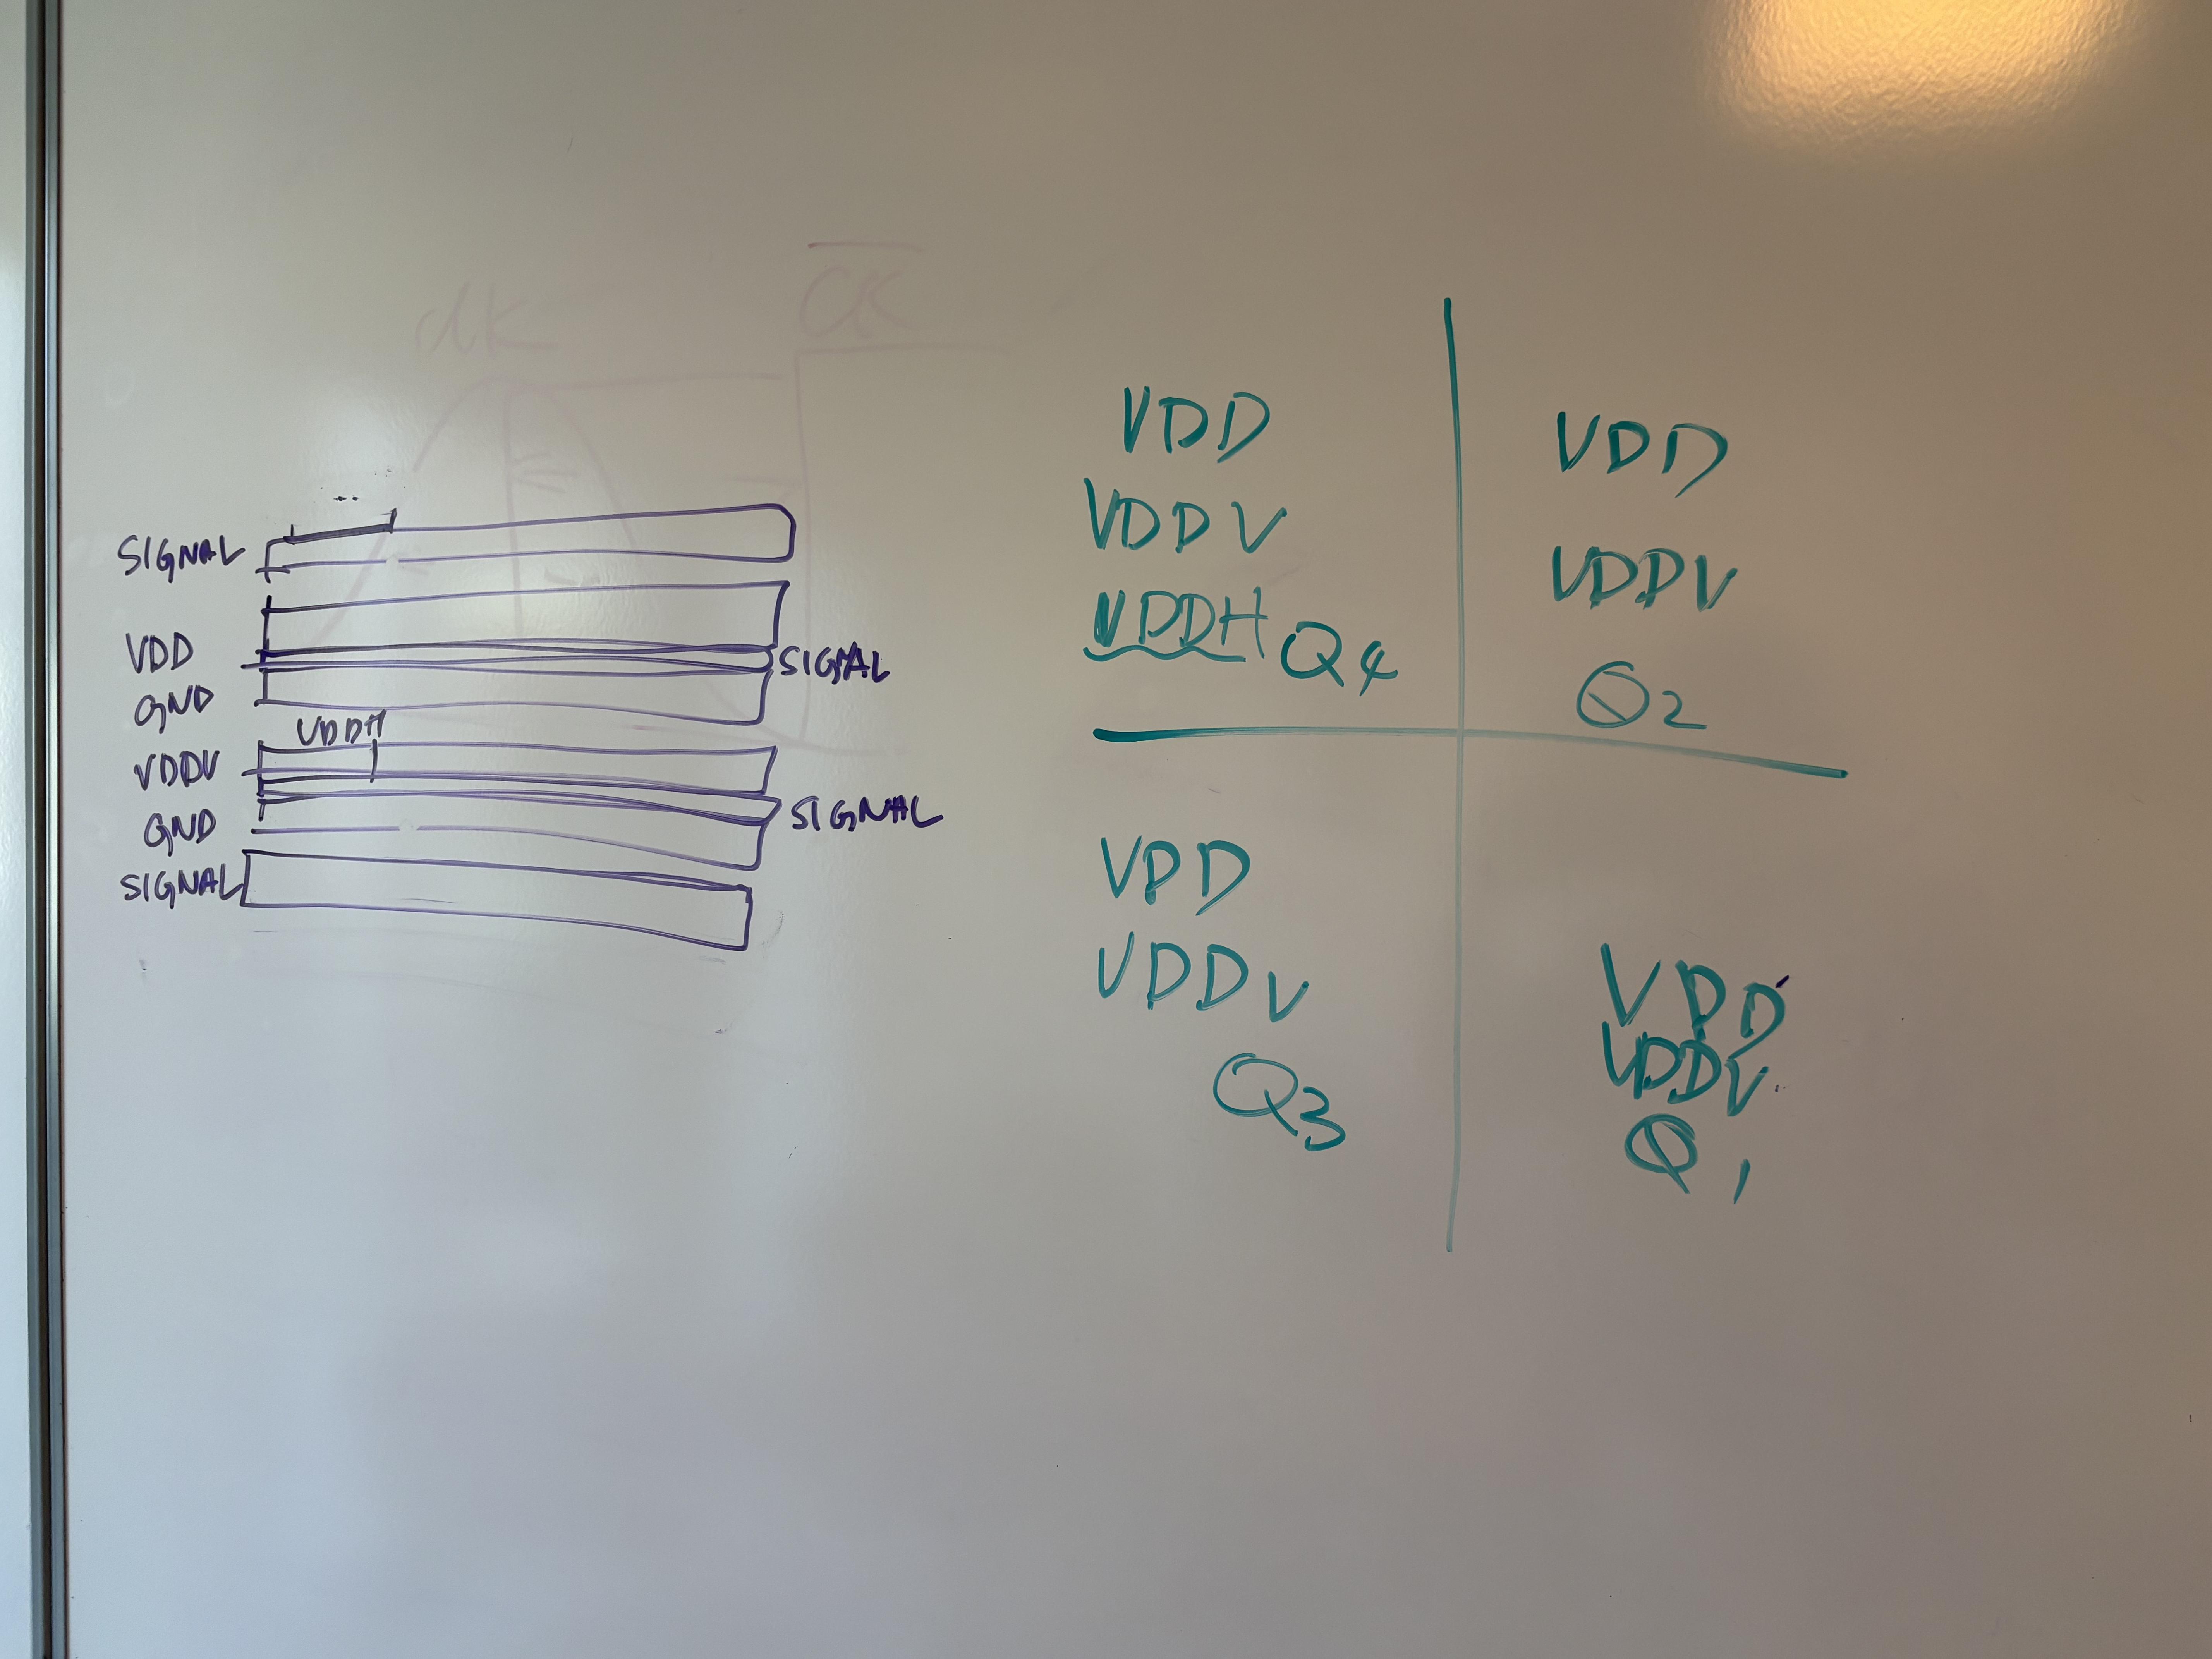 CLK
CLK
SIGNAL
VDD
SIGNAL
GND
VDDH
VDDV
GND
SIGNAL
SIGNAL
VDD
VDDV
VDDH Q4
VDD
VDDV
Q2
VDD
VDDV
Q3
VDD
VDDV
Q1